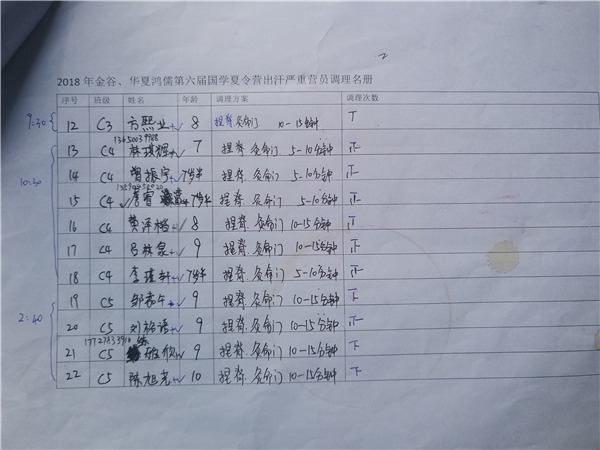 2
2018 年金谷、华夏鸿儒第六届国学夏令营出汗严重营员调理名册
序号 班级 姓名 年龄 调理方案 调理次数
9:30 12 C3 方熙业 8 捏脊 灸命门 10-15分钟
13 C4 7 捏脊 灸命门 5-10分钟 正
10:30 14 C4 曾振宇 7岁半 捏脊 灸命门 5-10分钟 正
15 C4 7岁半 捏脊 灸命门 5-10分钟 正
16 C4 黄泽楷 8 捏脊 灸命门 10-15分钟 正
17 C4 吕林泉 9 捏脊 灸命门 10-15分钟 正
18 C4 李瑾轩 7岁半 捏脊 灸命门 10-15分钟 正
19 C5 9 捏脊 灸命门 10-15分钟 下
2:40 20 C5 9 捏脊 灸命门 10-15分钟
21 C5 9 捏脊 灸命门 10-15分钟 下
22 C5 陈旭尧 10 捏脊 灸命门 10-15分钟 下